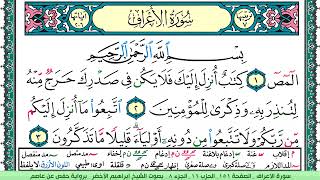 سُورَةُ الأَعْرَافِ
بِسْمِ اللَّهِ الرَّحْمَٰنِ الرَّحِيمِ
الٓمٓصٓ ١ كِتَٰبٌ أُنزِلَ إِلَيْكَ فَلَا يَكُن فِي صَدْرِكَ حَرَجٌ مِّنْهُ
لِتُنذِرَ بِهِۦ وَذِكْرَىٰ لِلْمُؤْمِنِينَ ٢ ٱتَّبِعُوا۟ مَآ أُنزِلَ إِلَيْكُم
مِّن رَّبِّكُمْ وَلَا تَتَّبِعُوا۟ مِن دُونِهِۦٓ أَوْلِيَآءَ قَلِيلًا مَّا تَذَكَّرُونَ ٣
سورة الاعراف - الصفحة ١٥١ - الحزب ١٦ - الجزء ٨ - بصوت الشيخ ابراهيم الأخضر - برواية حفص عن عاصم